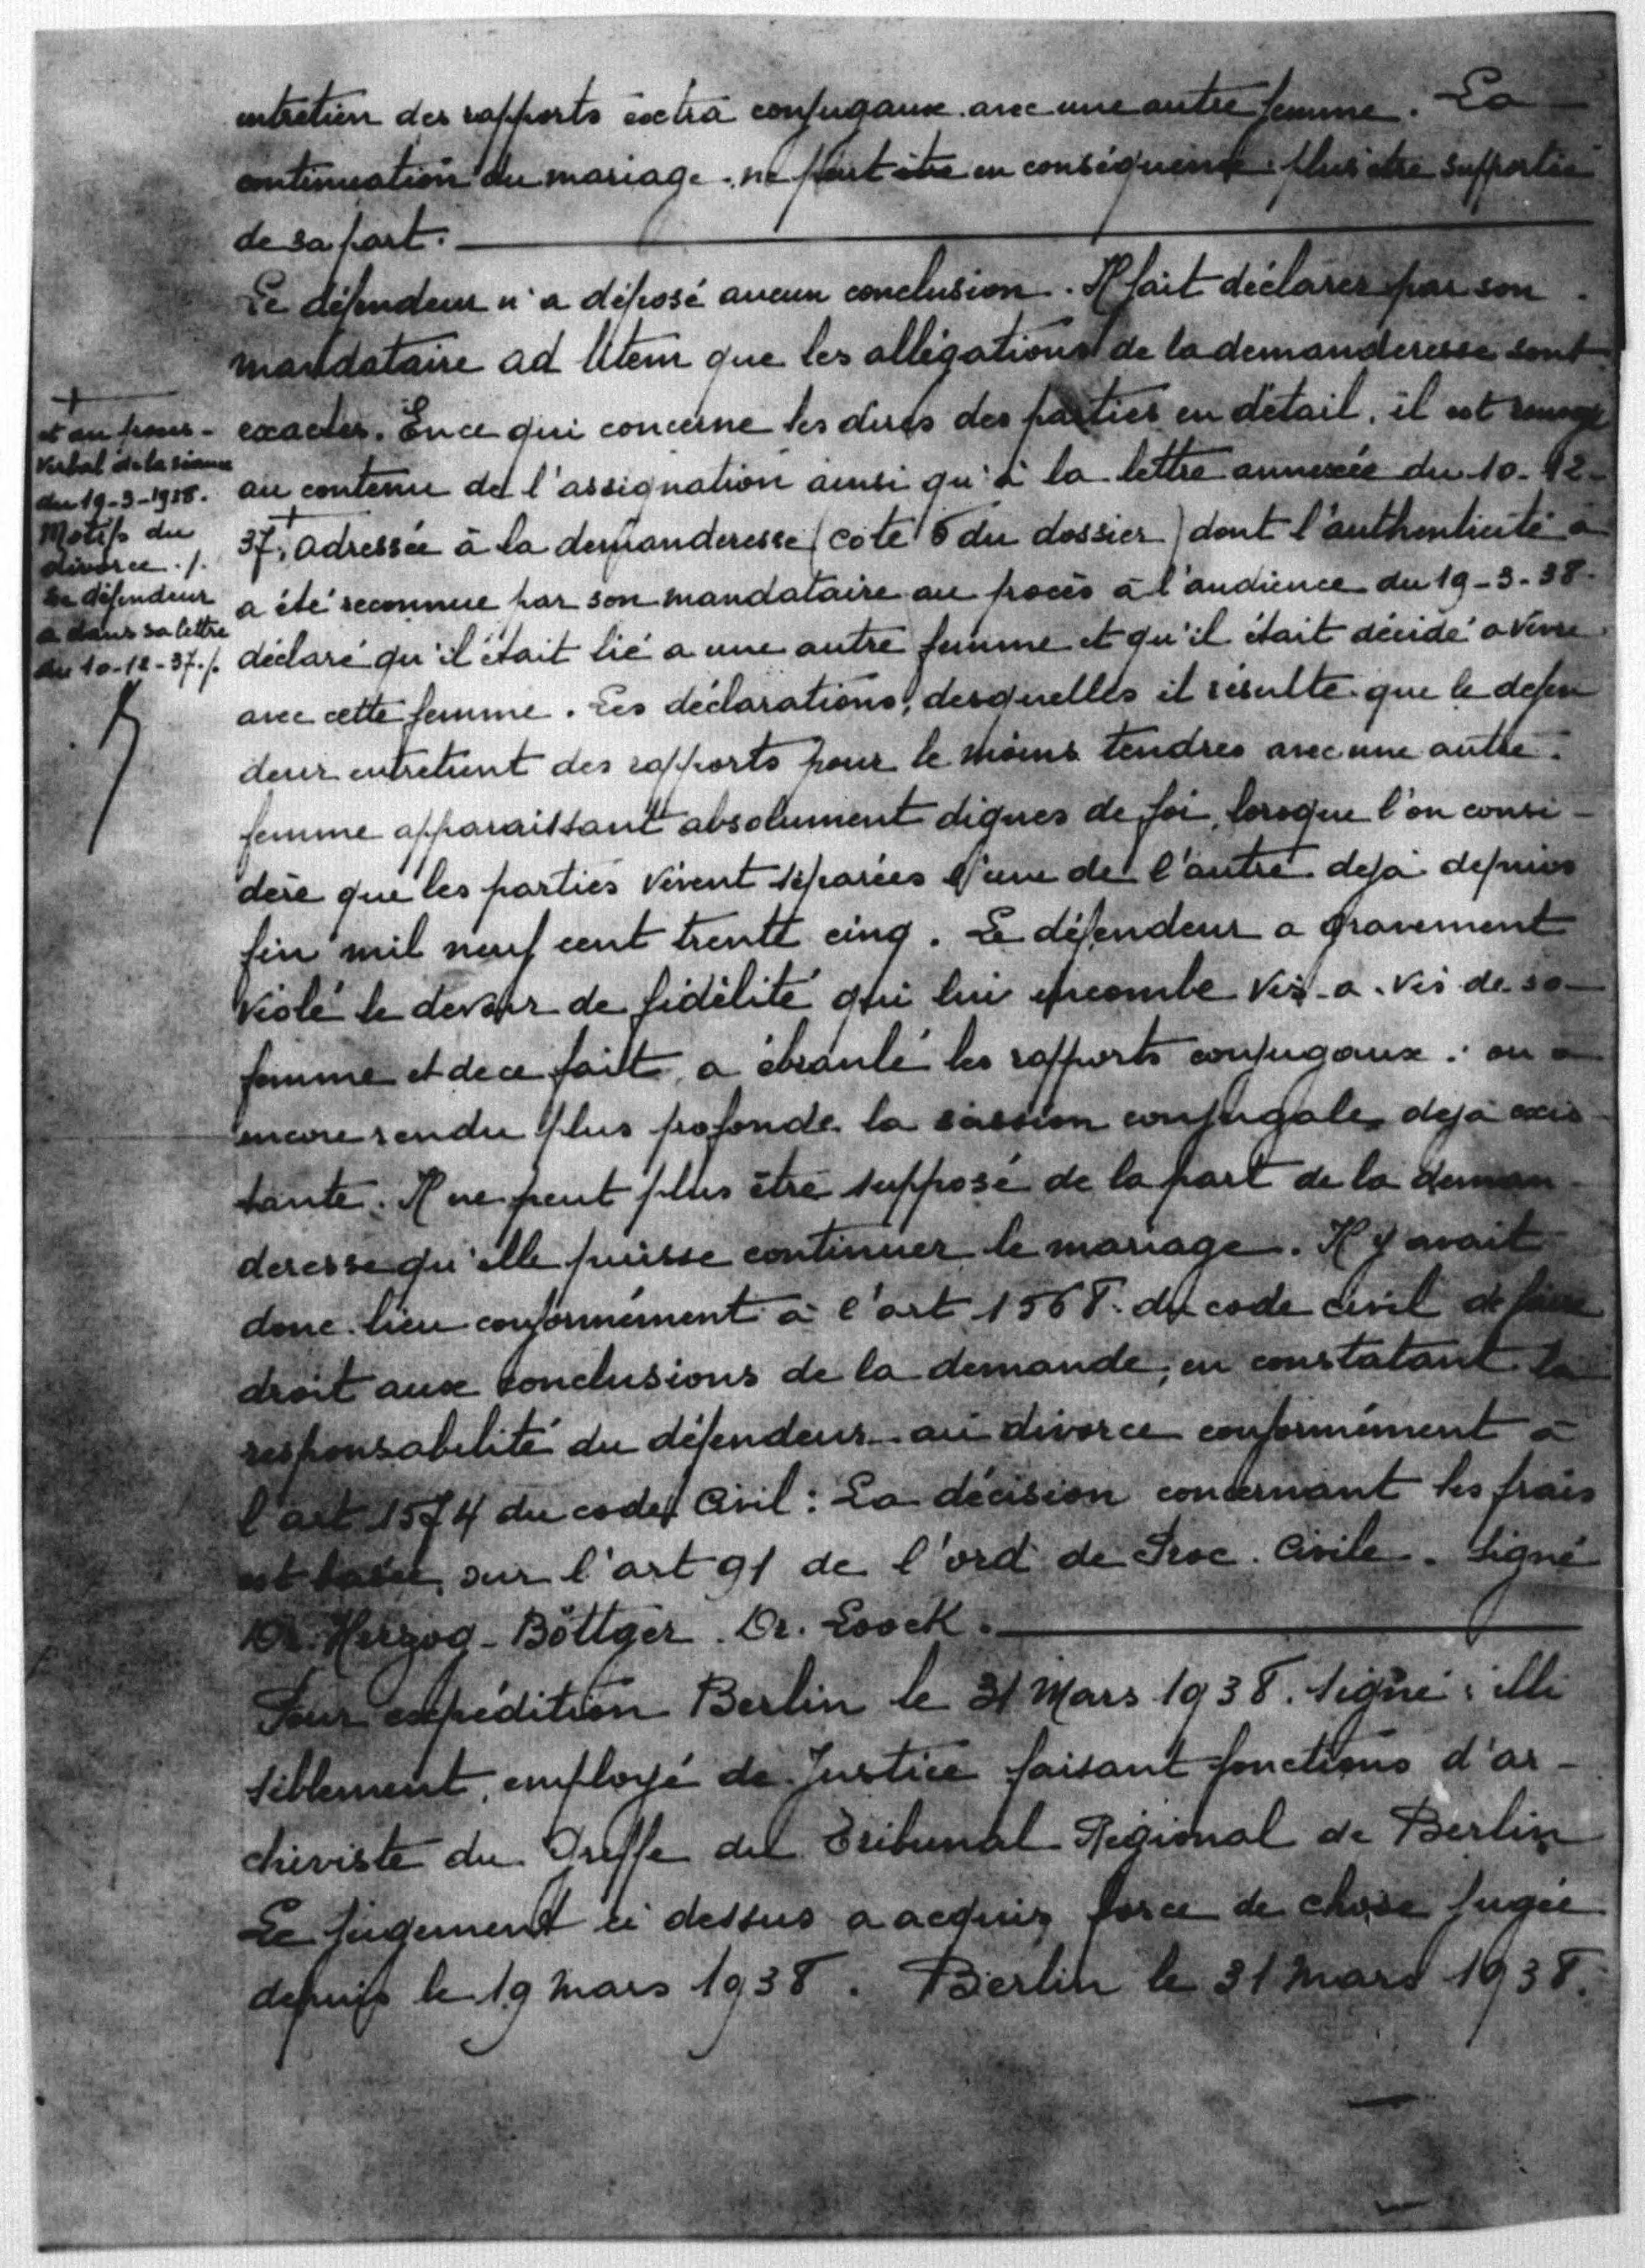 entretien des rapports extra conjugaux avec une autre femme. La
continuation du mariage ne peut être en conséquence plus être supportée
de sa part.
Le défendeur n'a déposé aucun conclusion. Il fait déclarer par son
mandataire ad litem que les allégations de la demanderesse sont
exactes. En ce qui concerne les dires des parties en détail, il est renvoyé
au contenu de l'assignation ainsi qu'à la lettre annexée du 10-12-
37, + adressée à la demanderesse (cote 5 du dossier) dont l'authenticité a
a été reconnue par son mandataire au procès à l'audience du 19-3-38-
déclaré qu'il était lié a une autre femme et qu'il était décidé a vivre
avec cette femme. Les déclarations, desquelles il résulte que le défen
deur entretient des rapports pour le moins tendres avec une autre
femme apparaissant absolument dignes de foi, lorsque l'on consi-
dère que les parties vivent séparées l'une de l'autre deja depuis
fin mil neuf cent trente cinq. Le défendeur a gravement
violé le devoir de fidélité qui lui incombe vis-a-vis de sa
femme et de ce fait, a ébranlé les rapports conjugaux: ou a
encore rendu plus profonde la conjugale deja exis
tante. Il ne peut plus être supposé de la part de la deman-
deresse qu'elle puisse continuer le mariage. Il y avait
donc lieu conformément à l'art 1568 du code civil de faire
droit aux conclusions de la demande, en constatant la
responsabilité du défendeur au divorce conformément à
l'art 1574 du code Civil: La décision concernant les frais
est basée, sur l'art 91 de l'ord de Proc. Civile. Signé
Dr. Herzog - Böttger. Dr. Loock.
Pour expédition Berlin le 31 Mars 1938. Signé: illi
siblement, employé de Justice faisant fonctions d'ar-
chiviste du Greffe du Tribunal Régional de Berlin
Le jugement ci dessus a acquis force de chose jugée
depuis le 19 mars 1938. Berlin le 31 mars 1938.
+
et au procès-
verbal de la séance
du 19-3-1938.
Motifs du
divorce ./.
Le défendeur
a dans sa lettre
du 10-12-37./.